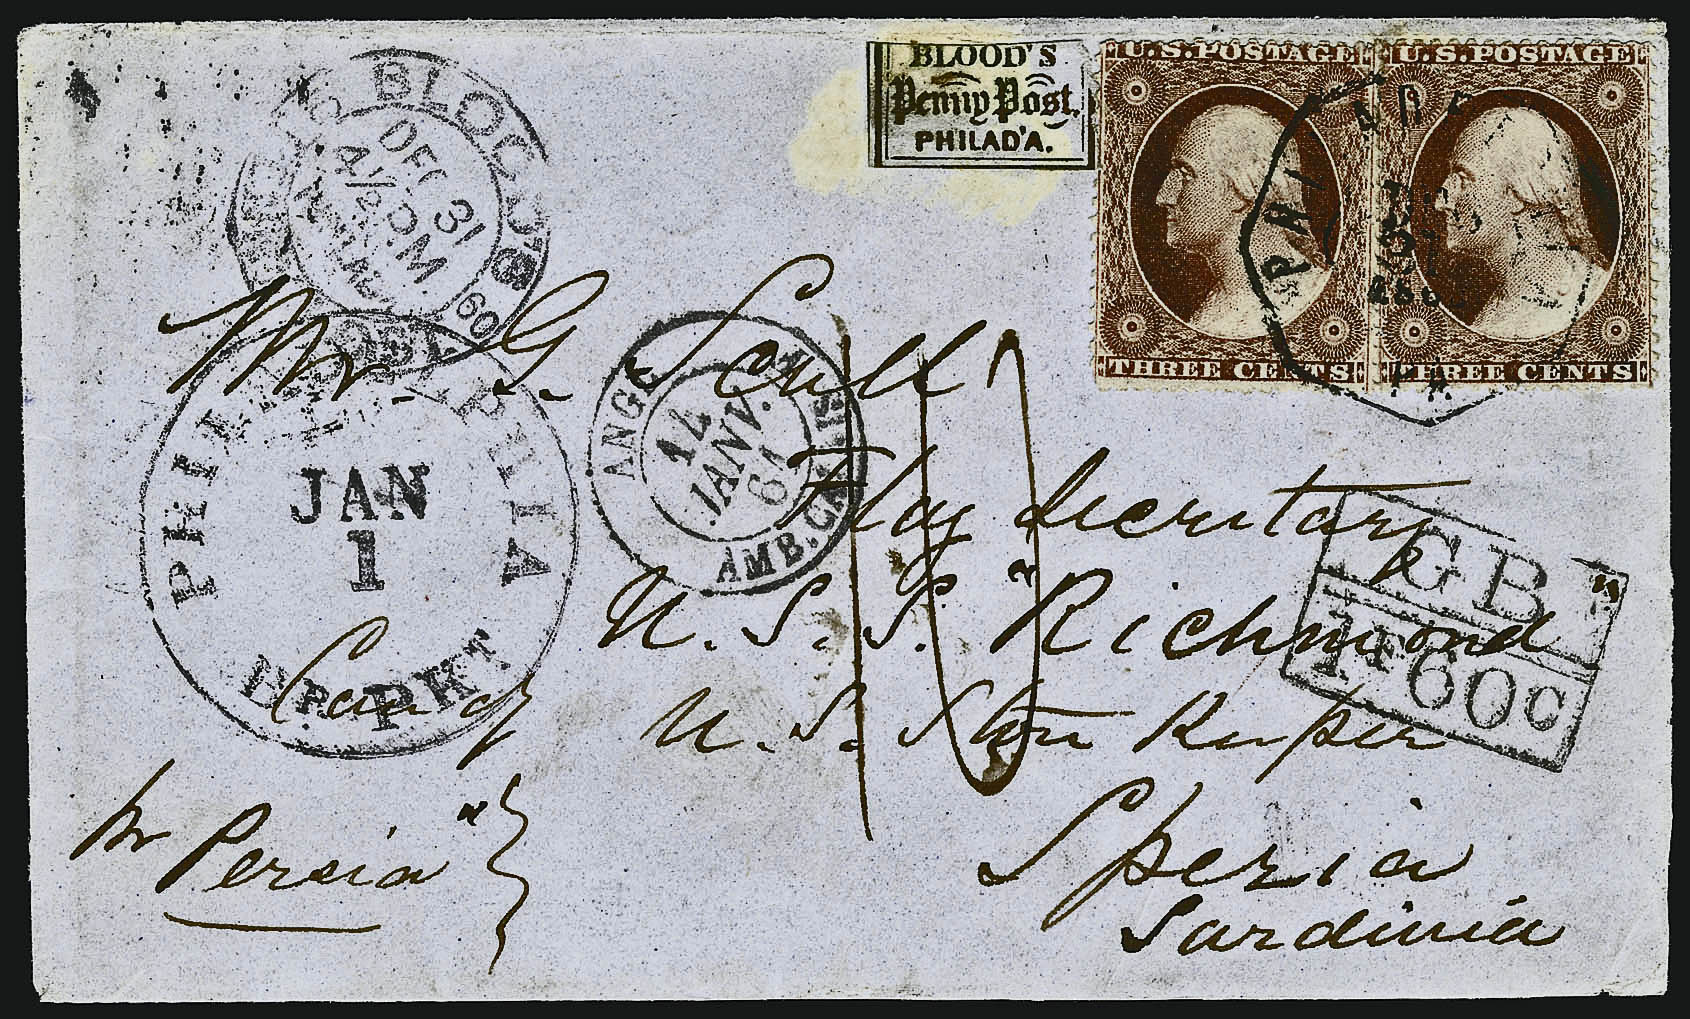 BLOOD'S
Penny Post,
PHILAD'A.
U.S.POSTAGE
THREE CENTS
U.S.POSTAGE
THREE CENTS
BLOOD'S
DEC 31
4 1/2 P.M.
60
PHILADELPHIA
JAN
1
BR. PKT.
ANGL.
14
JANV.
61
AMB. CALAIS
GB
1F60C
Mr. G. Scull
Flag Secretary
U. S. S. "Richmond"
Care of U. S. Store Keeper
Spezia
Sardinia
pr Persia"